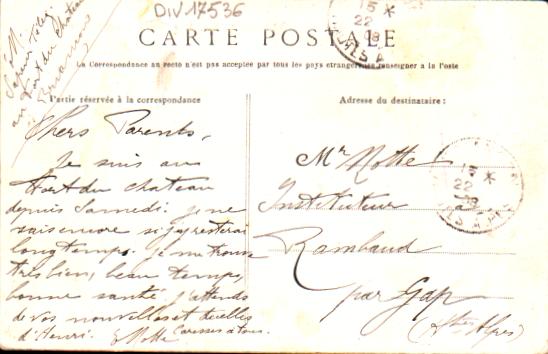 DIV 17536
M.
au Fort du Chateau
Briançon
CARTE POSTALE
La Correspondance au recto n'est pas acceptée par tous les pays étrangers (se renseigner à la Poste)
Partie réservée à la correspondance
Adresse du destinataire:
Chers Parents,
Je suis au
Fort du Chateau
depuis Samedi. je ne
sais encore si j'y resterai
longtemps. Je me trouve
très bien, beau temps,
bonne santé, j'attends
de vos nouvelles et de celles
d'Henri. Caresses à tous.
EMotte
Mr Motte
Instituteur à
Rambaud
par Gap
(Htes Alpes)
15 *
22
08
15 *
22
08